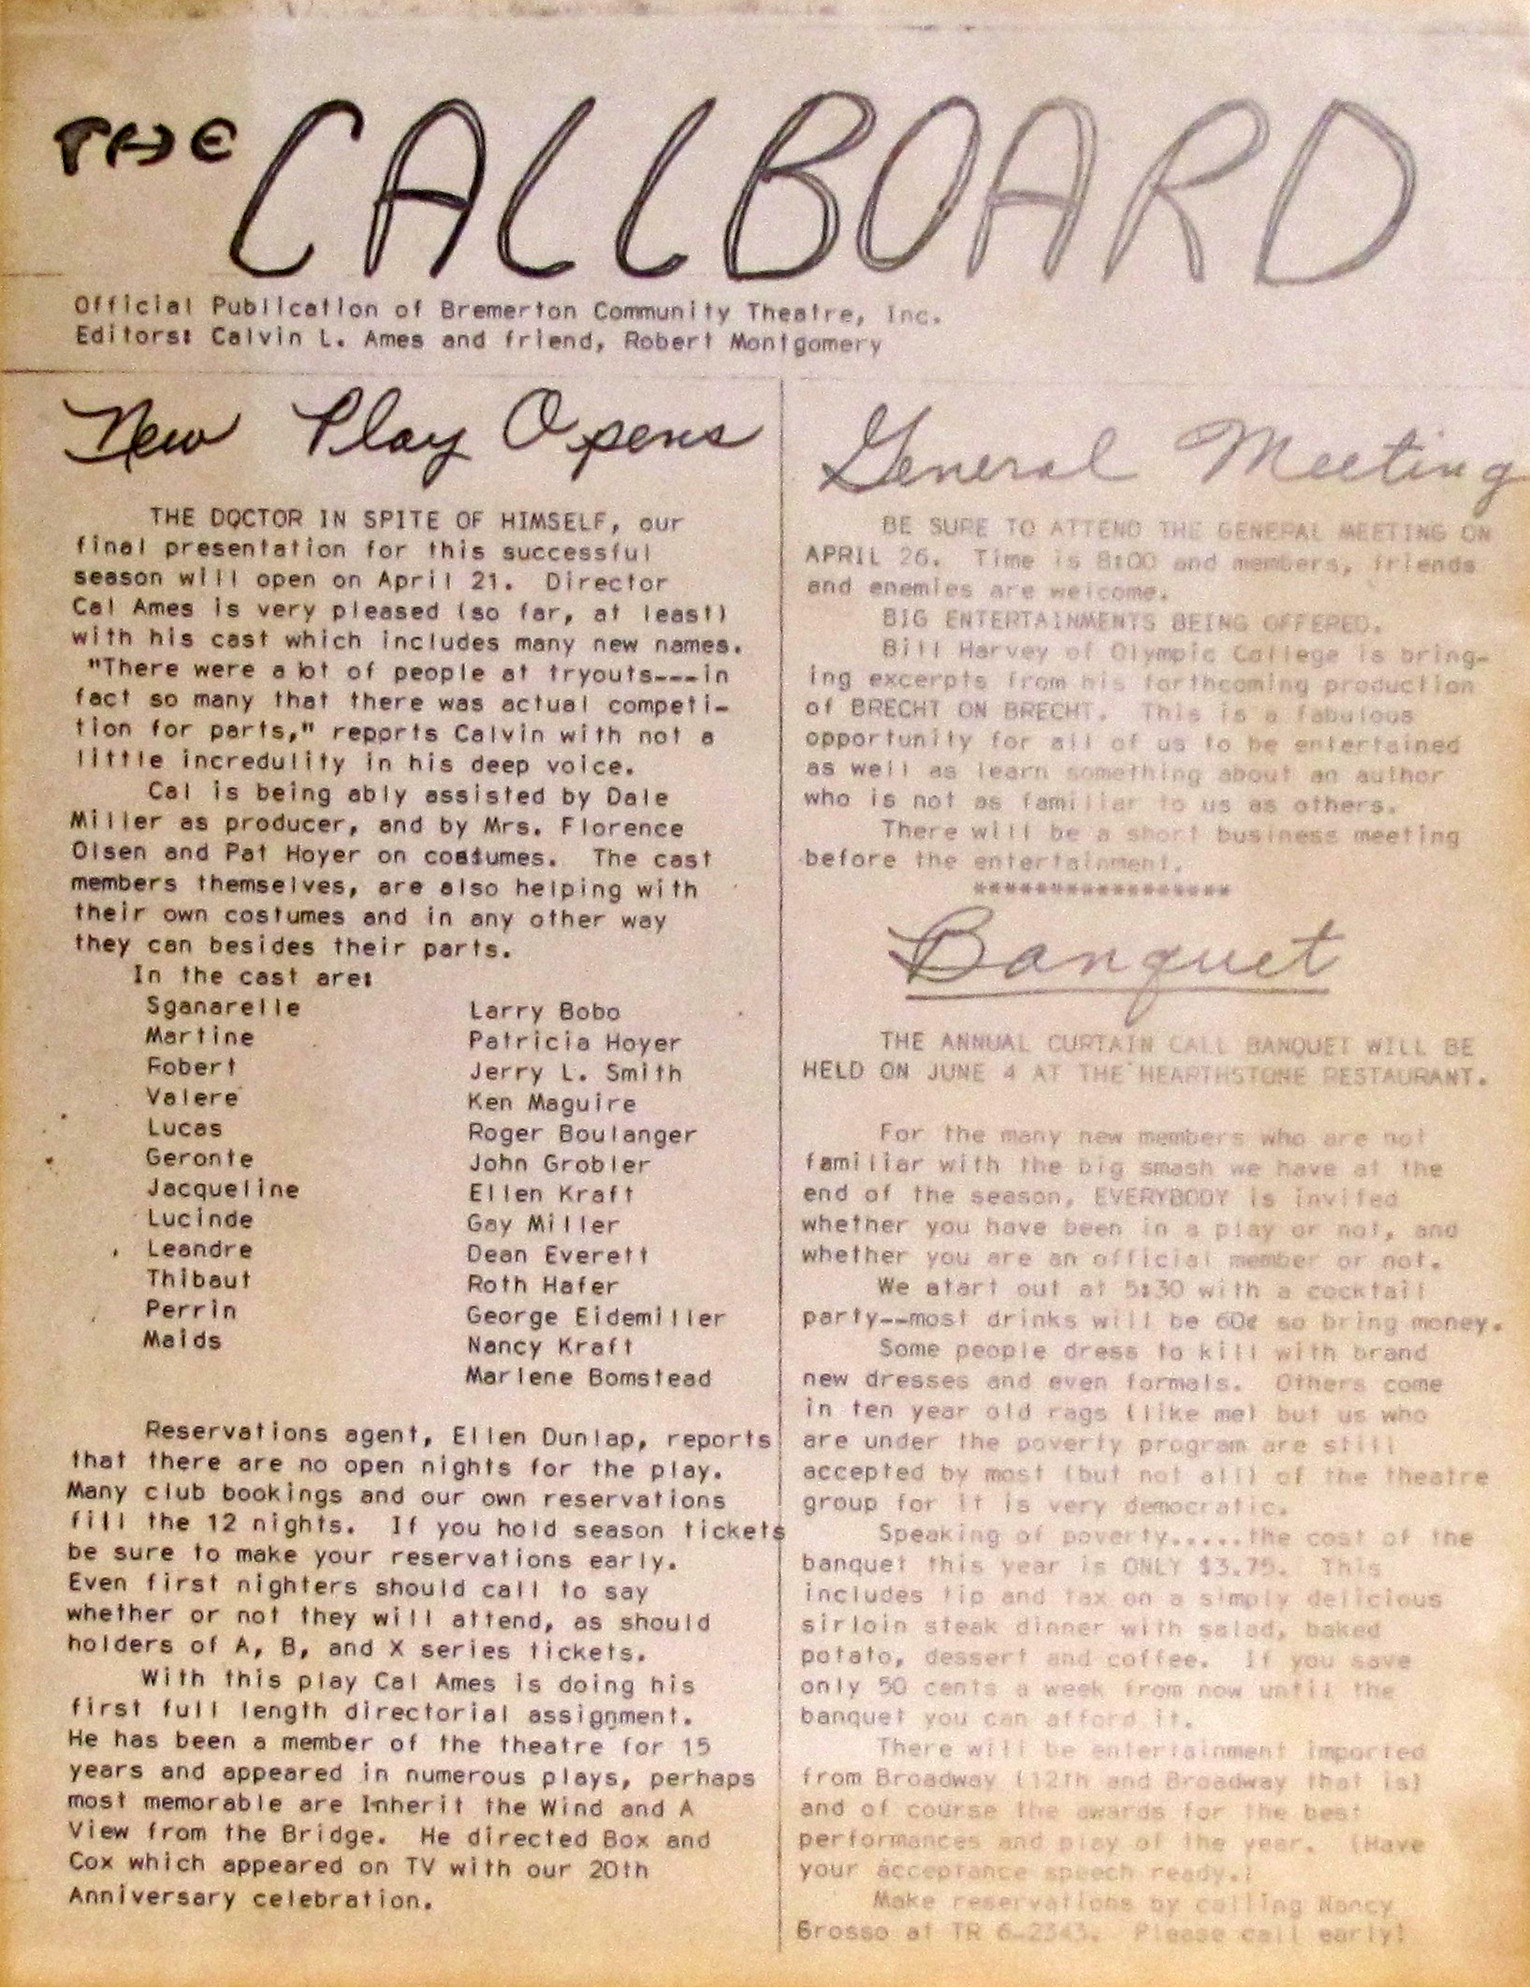 THE CALLBOARD
Official Publication of Bremerton Community Theatre, Inc.
Editors: Calvin L. Ames and friend, Robert Montgomery
New Play Opens
THE DOCTOR IN SPITE OF HIMSELF, our
final presentation for this successful
season will open on April 21. Director
Cal Ames is very pleased (so far, at least)
with his cast which includes many new names.
"There were a lot of people at tryouts---in
fact so many that there was actual competi-
tion for parts," reports Calvin with not a
little incredulity in his deep voice.
Cal is being ably assisted by Dale
Miller as producer, and by Mrs. Florence
Olsen and Pat Hoyer on costumes. The cast
members themselves, are also helping with
their own costumes and in any other way
they can besides their parts.
In the cast are:
Sganarelle Larry Bobo
Martine Patricia Hoyer
Robert Jerry L. Smith
Valere Ken Maguire
Lucas Roger Boulanger
Geronte John Grobler
Jacqueline Ellen Kraft
Lucinde Gay Miller
Leandre Dean Everett
Thibaut Roth Hafer
Perrin George Eidemiller
Maids Nancy Kraft
Marlene Bomstead
Reservations agent, Ellen Dunlap, reports
that there are no open nights for the play.
Many club bookings and our own reservations
fill the 12 nights. If you hold season tickets
be sure to make your reservations early.
Even first nighters should call to say
whether or not they will attend, as should
holders of A, B, and X series tickets.
With this play Cal Ames is doing his
first full length directorial assignment.
He has been a member of the theatre for 15
years and appeared in numerous plays, perhaps
most memorable are Inherit the Wind and A
View from the Bridge. He directed Box and
Cox which appeared on TV with our 20th
Anniversary celebration.
General Meeting
BE SURE TO ATTEND THE GENERAL MEETING ON
APRIL 26. Time is 8:00 and members, friends
and enemies are welcome.
BIG ENTERTAINMENTS BEING OFFERED.
Bill Harvey of Olympic College is bring-
ing excerpts from his forthcoming production
of BRECHT ON BRECHT. This is a fabulous
opportunity for all of us to be entertained
as well as learn something about an author
who is not as familiar to us as others.
There will be a short business meeting
before the entertainment.
*****************
Banquet
THE ANNUAL CURTAIN CALL BANQUET WILL BE
HELD ON JUNE 4 AT THE HEARTHSTONE RESTAURANT.
For the many new members who are not
familiar with the big smash we have at the
end of the season, EVERYBODY is invited
whether you have been in a play or not, and
whether you are an official member or not.
We start out at 5:30 with a cocktail
party--most drinks will be 60¢ so bring money.
Some people dress to kill with brand
new dresses and even formals. Others come
in ten year old rags (like me) but us who
are under the poverty program are still
accepted by most (but not all) of the theatre
group for it is very democratic.
Speaking of poverty.....the cost of the
banquet this year is ONLY $3.75. This
includes tip and tax on a simply delicious
sirloin steak dinner with salad, baked
potato, dessert and coffee. If you save
only 50 cents a week from now until the
banquet you can afford it.
There will be entertainment imported
from Broadway (12th and Broadway that is)
and of course the awards for the best
performances and play of the year. (Have
your acceptance speech ready.)
Make reservations by calling Nancy
Grosso at TR 6-2343. Please call early!